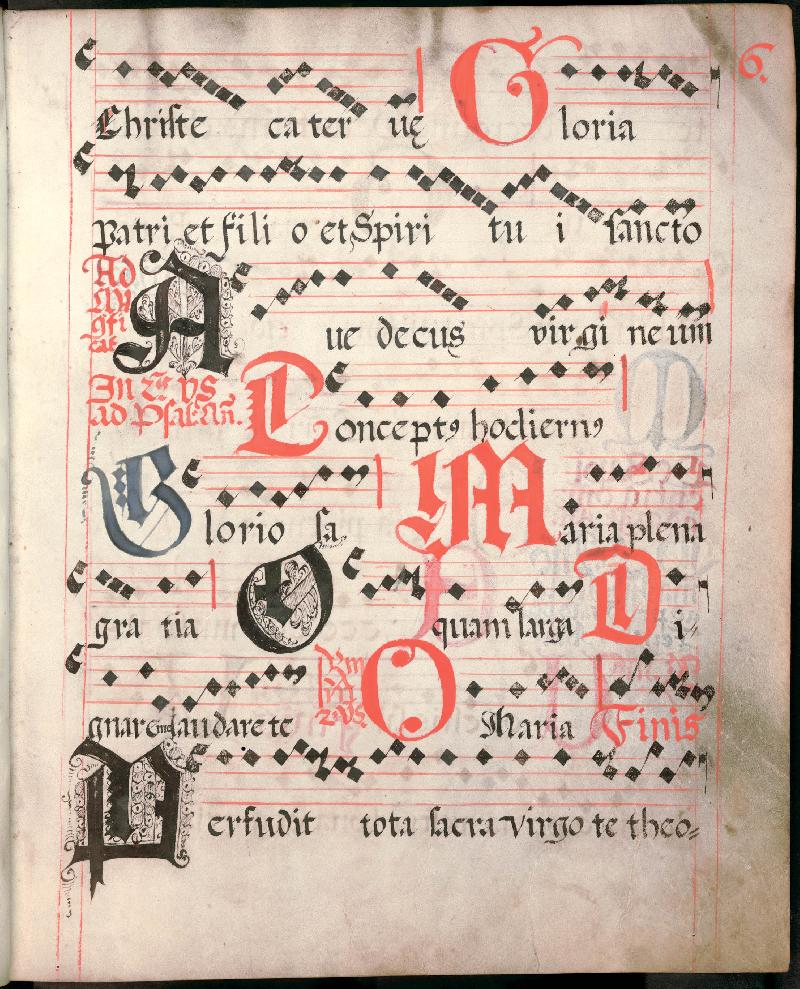 6.
Christe ca ter uę Gloria
Patri et fili o et Spiri tu i sancto
Ad
Aue decus virgi neum
In ad Psal
Concept9 hodiern9
Glorio sa Maria plena
gra tia O quam larga Di-
gnare laudare te O Maria Finis
Perfudit tota sacra virgo te theo=